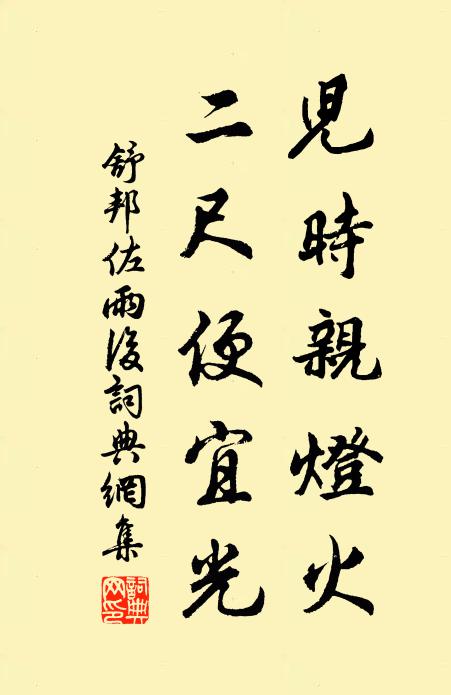 兒時親燈火
二尺便宜光
舒邦佐雨後詞典網集
詞典网印